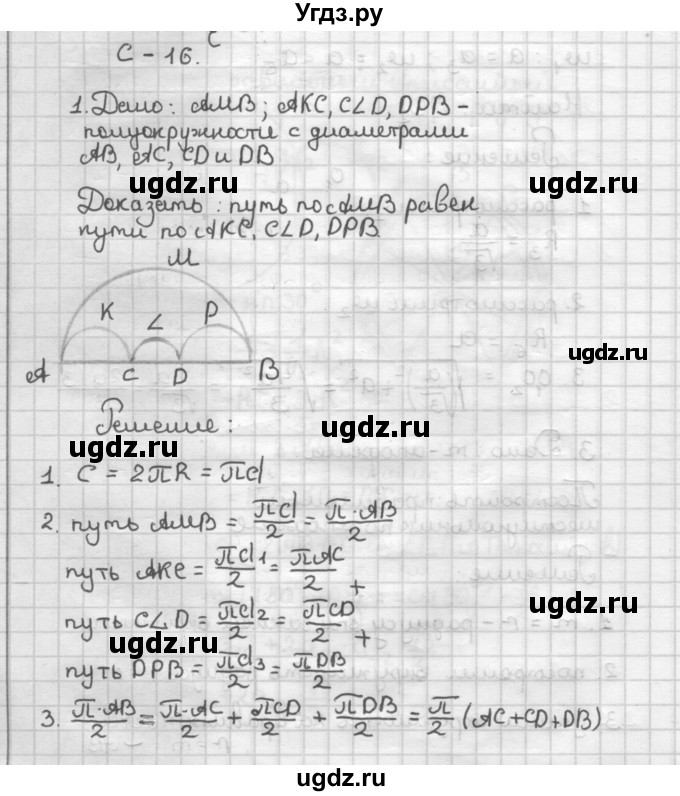 Угдз.ру
С - 16.
1. Дано: AMB; AKC, CLD, DPB -
полуокружности с диаметрами
AB, AC, CD и DB
ugdz.ru ugdz.ru
Доказать: путь по AMB равен
пути по AKC, CLD, DPB
M
K L P
ugdz.ru
A C D B
Решение:
ugdz.ru ugdz.ru
1. C = 2πR = πd
2. путь AMB = πd/2 = π·AB/2
путь AKC = πd1/2 = πAC/2 +
ugdz.ru
путь CLD = πd2/2 = πCD/2 +
ugdz.ru
путь DPB = πd3/2 = πDB/2
3. π·AB/2 = π·AC/2 + πCD/2 + πDB/2 = π/2 (AC+CD+DB)
ugdz.ru